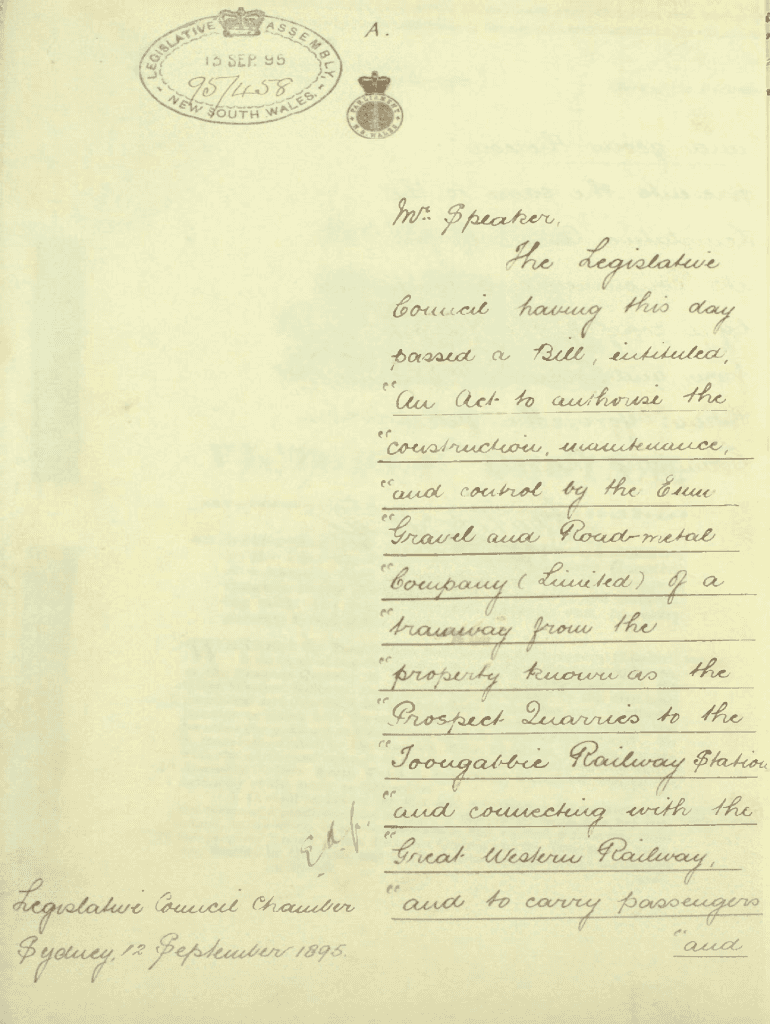 A.
LEGISLATIVE ASSEMBLY,
13 SEP. 95
95/458
NEW SOUTH WALES.
PARLIAMENT
N.S. WALES
Mr. Speaker,
The Legislative
Council having this day
passed a Bill, intituled,
"An Act to authorise the
"construction, maintenance,
"and control by the Emu
"Gravel and Road-metal
"Company (Limited) of a
"tramway from the
"property known as the
"Prospect Quarries to the
"Toongabbie Railway Station
"and connecting with the
"Great Western Railway,
"and to carry passengers
"and
Legislative Council Chamber
Sydney, 12 September 1895.